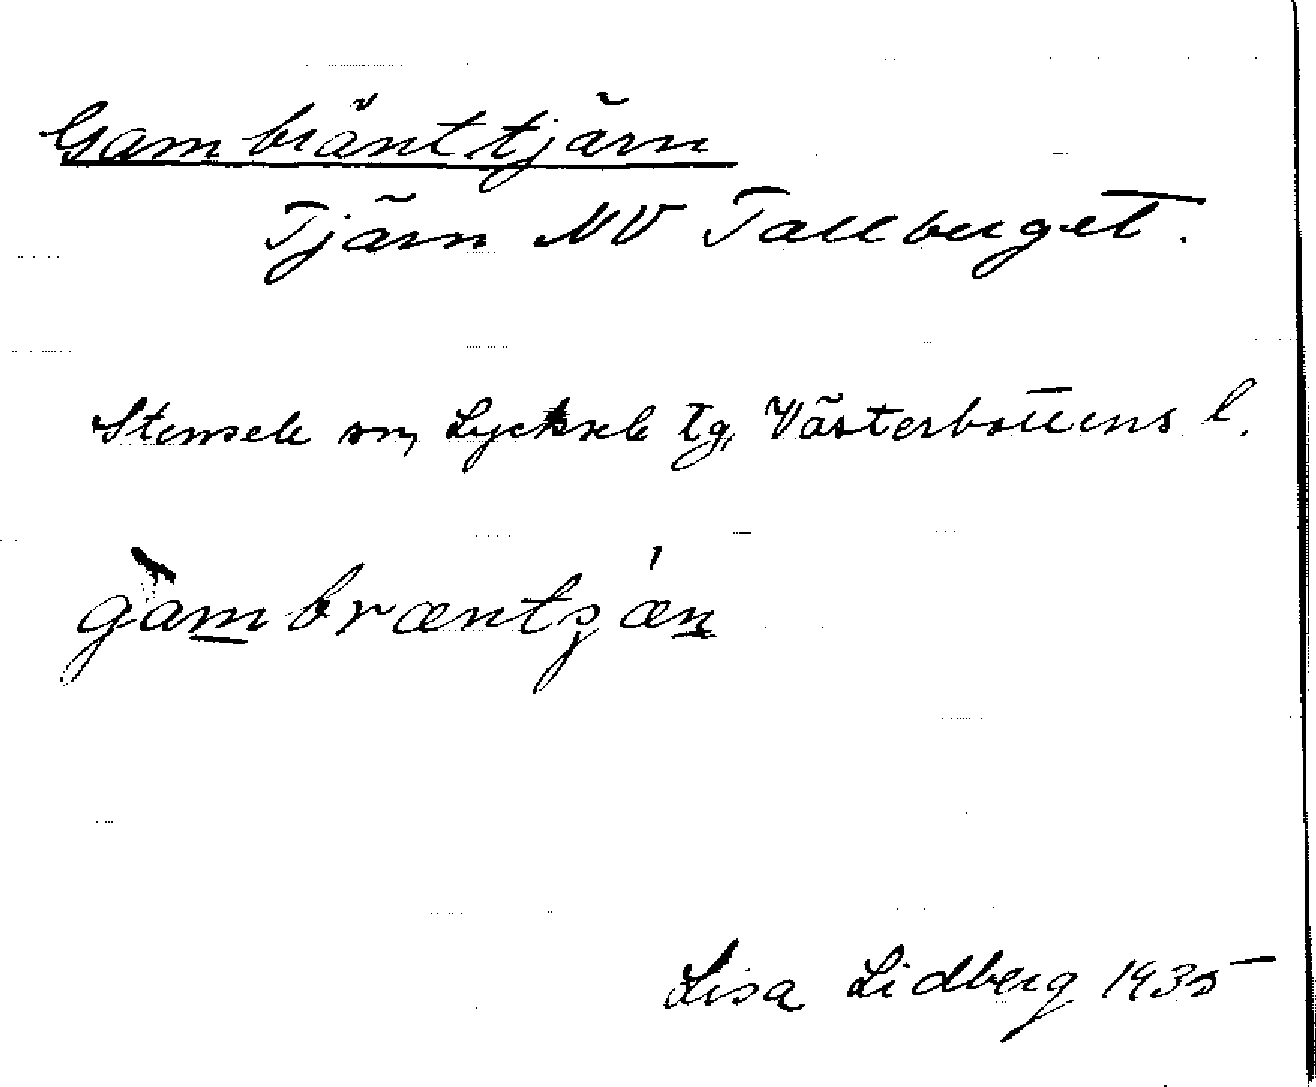 Gambränttjärn
Tjärn NV Tallberget.
Stensele sn, Lycksele tg, Västerbottens l.
Lisa Lidberg 1935